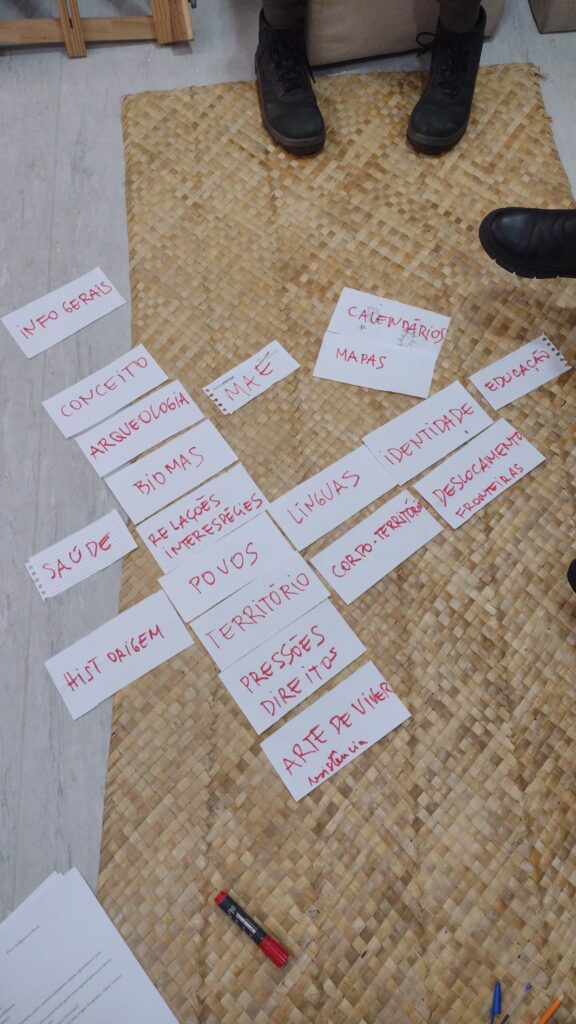 INFO GERAIS
CONCEITO
ARQUEOLOGIA
BIOMAS
RELAÇÕES
INTERESPÉCIES
POVOS
TERRITÓRIO
PRESSÕES
DIREITOS
ARTE DE VIVER
resistência
MAE
CALENDÁRIOS
MAPAS
EDUCAÇÃO
IDENTIDADE
LÍNGUAS
DESLOCAMENTO
FRONTEIRAS
CORPO-TERRITÓRIO
SAÚDE
HIST ORIGEM